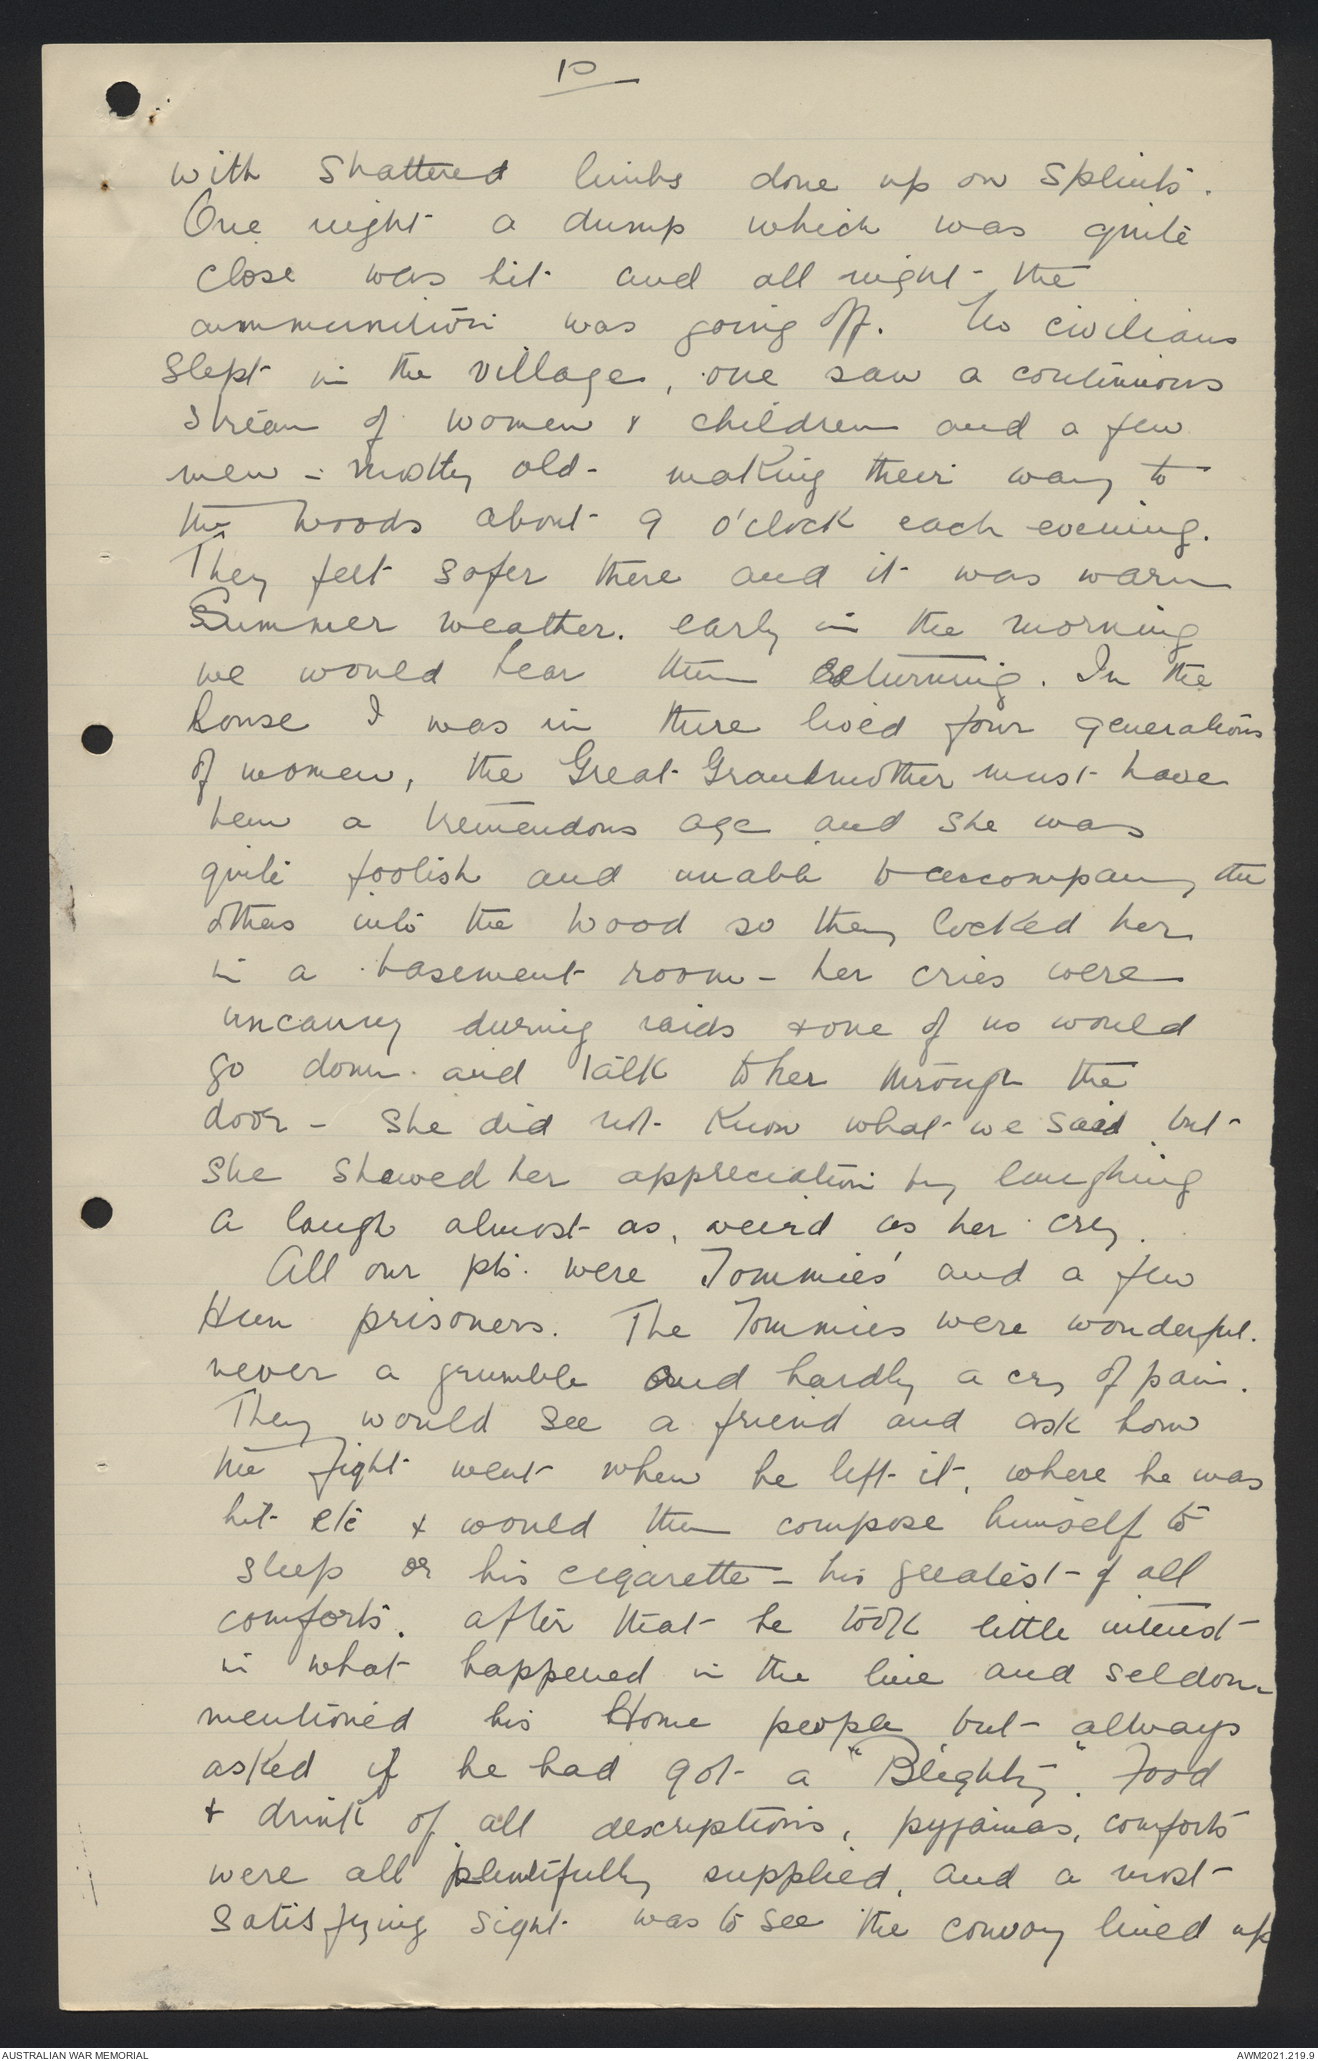 10
with shattered limbs done up on splints.
One night a dump which was quite
close was hit and all night the
ammunition was going off. No civilians
slept in the village, one saw a continuous
stream of women & children and a few
men - mostly old - making their way to
the woods about 9 o'clock each evening.
They felt safer there and it was warm
Summer weather. early in the morning
we would hear them returning. In the
house I was in there lived four generations
of women, the Great Grandmother must have
been a tremendous age and she was
quite foolish and unable to accompany the
others into the wood so they locked her
in a basement room - her cries were
uncanny during raids & one of us would
go down and talk to her through the
door - she did not know what we said but
she showed her appreciation by laughing
a laugh almost as weird as her cry.
All our pts. were Tommies' and a few
Hun prisoners. The Tommies were wonderful.
never a grumble and hardly a cry of pain.
They would see a friend and ask how
the fight went when he left it, where he was
hit etc & would then compose himself to
sleep or his cigarette - his greatest of all
comforts. after that he took little interest
in what happened in the line and seldom
mentioned his Home people but allways
asked if he had got a "Blighty". Food
& drink of all descriptions, pyjamas, comforts
were all plentifully supplied, and a most
satisfying sight was to see the convoy lined up
AUSTRALIAN WAR MEMORIAL
AWM2021.219.9